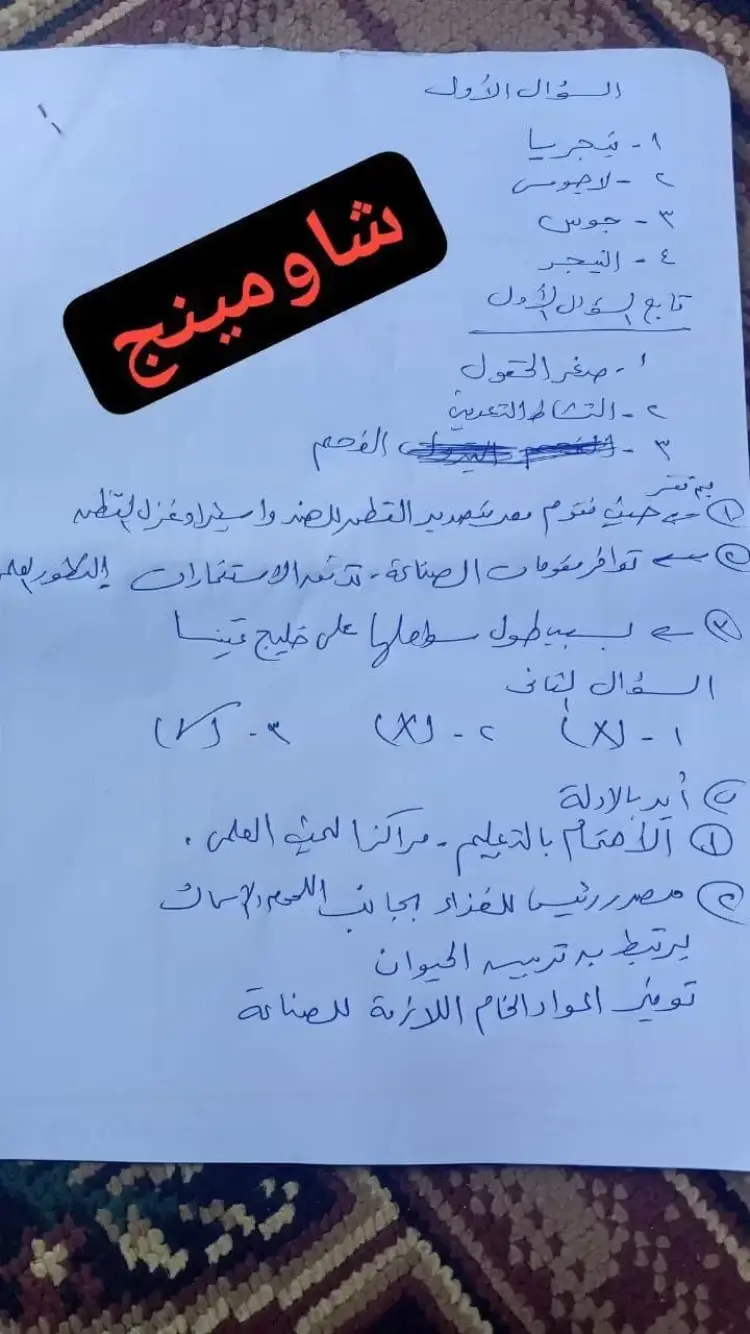 السؤال الأول
١ - نيجريا
٢ - لاجوس
٣ - جوس
٤ - النيجر
تابع السؤال الأول
١ - صغر الحقول
٢ - النشاط التعدين
٣ - الفحم
شاومينج
بم تفسر
① حيث تقوم مصر بتصدير القطن للهند واستيراد غزل القطن
② توافر مقومات الصناعة - تدفق الاستثمارات - التطور العلم
③ بسبب طول سطحلها على خليج غينيا
السؤال الثانى
١ - (X) ٢ - (X) ٣ - (√)
ب) أيد بالادلة
① الأهتمام بالتعليم - مراكز البحث العلمى .
② مصدر رئيسا للغذاء بجانب اللحوم والاسماك
يرتبط به تربيه الحيوان
توفير المواد الخام اللازمة للصناعة